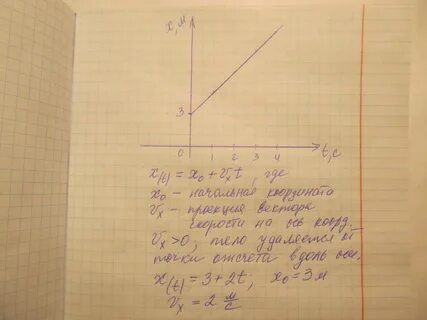 x, м
3
0 1 2 3 4 t, c
x(t) = x₀ + vₓt, где
x₀ – начальная координата
vₓ – проекция вектора
скорости на ось коорд.
vₓ > 0, тело удаляется от
точки отсчёта вдоль оси.
x(t) = 3 + 2t, x₀ = 3 м
vₓ = 2 м/с